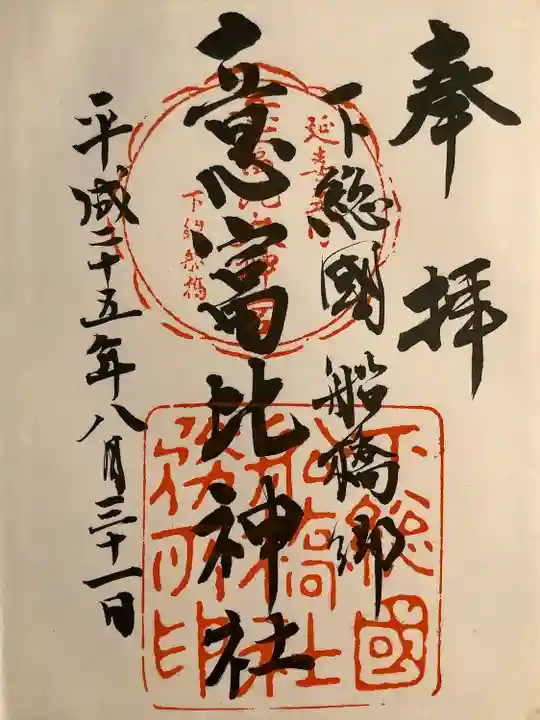 奉拝
下総國船橋郷
意富比神社
平成二十五年八月三十一日
延喜式内
下総船橋
下総國
船橋